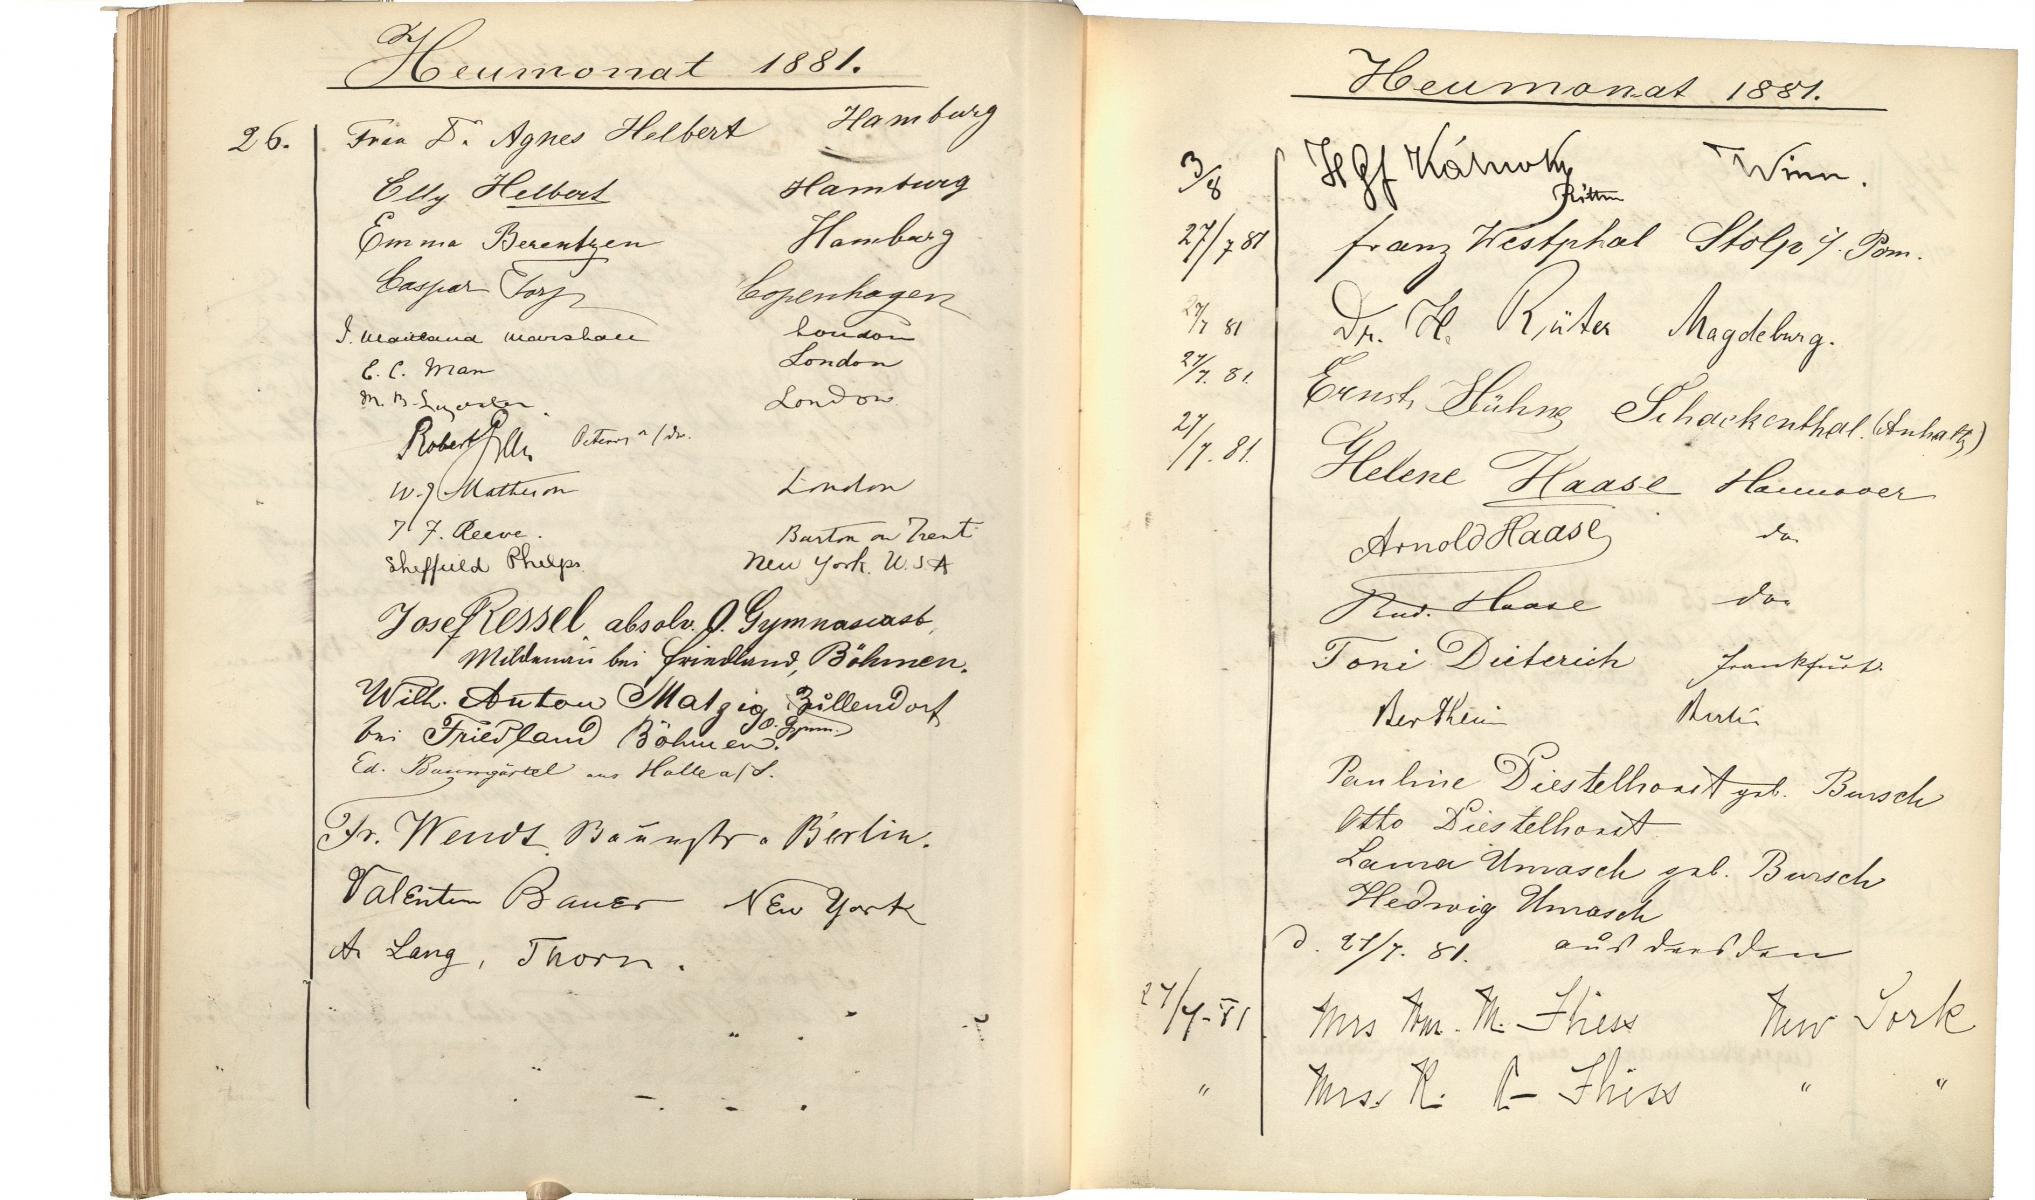 Heumonat 1881.
26. Frau Dr. Agnes Helbert Hamburg
Elly Helbert Hamburg
Emma Berentzen Hamburg
Caspar Torp Copenhagen
J. Maitland Marshall London
E. C. Man London
M. B. London
Robert
W. J. Matheson London
T F. Reeve. Burton on Trent
Sheffield Phelps. New York. U.S.A
Josef Ressel, absolv. O. Gymnasiast,
Mildenau bei Friedland, Böhmen.
Wilh. Anton Matzig Züllendorf
bei Friedland Böhmen. O. Gymn.
Ed. Baumgärtel aus Halle a/S.
Fr. Wendt Berlin.
Valentin Bauer New York
A. Lang, Thorn.
Heumonat 1881.
3/8 Wien.
27/7 81 Franz Westphal Stolp i/. Pom.
27/7 81 Dr. H. Rüter Magdeburg.
27/7. 81. Ernst Hühne Schackenthal. (Anhalt)
27/7. 81. Helene Haase Hannover
Arnold Haase do.
Rud. Haase do.
Toni Dieterich Frankfurt.
Berthein Berlin
Pauline Diestelhorst geb. Bursch
Otto Diestelhorst
Laura Umasch geb. Bursch
Hedwig Umasch
d. 27/7. 81. aus Dresden
27/7-81 Mrs Wm. M. Thiess New York
" Mrs. K. Thiess " "